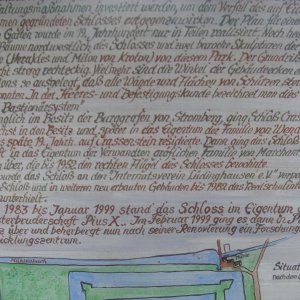 tungsmaßnahmen investiert werden, um den Verfall des auf ei
gegründeten Schlosses entgegenzuwirken. Der Plan für den
Garten wurde im 19. Jahrhundert nur in Teilen realisiert. Noch heu
Bäume nordwestlich des Schlosses und zwei barocke Skulpturen des
(Herakles und Milon von Kroton) von diesem Park. Der Grundriß
cht streng rechteckig. Vielmehr sind die Winkel des Gebäudetrackes
so ausgelegt, daß alle Wände und Flächen von Schützen
konnten. In der Heeres- und Befestigungskunde bezeichnet man dies
Bastionärsystem"
glich im Besitz der Burggrafen von Stromberg, ging Schloß Crass
chst in den Besitz und später in das Eigentum der Familie von Wend
späte 19. Jahrh. auf Crassenstein residierte. Dann ging das Schloß
in das Eigentum der verwandten gräflichen Familie von Merch
über, die bis 1952 den rechten Flügel des Schlosses bewohnte
wurde das Schloß an den Internatsverein Lüdinghausen e.V" verpac
Schloß und in weiteren neu erbauten Gebäuden bis 1982 das Realschulin
unterhielt.
1983 bis Januar 1999 stand das Schloss im Eigentum
sterbruderschaft Pius X.. Im Februar 1999 ging es dann i.
über und beherbergt nun nach seiner Renovierung ein Forschung
cklungszentrum.
Mühlenbach
Situat
nach dem